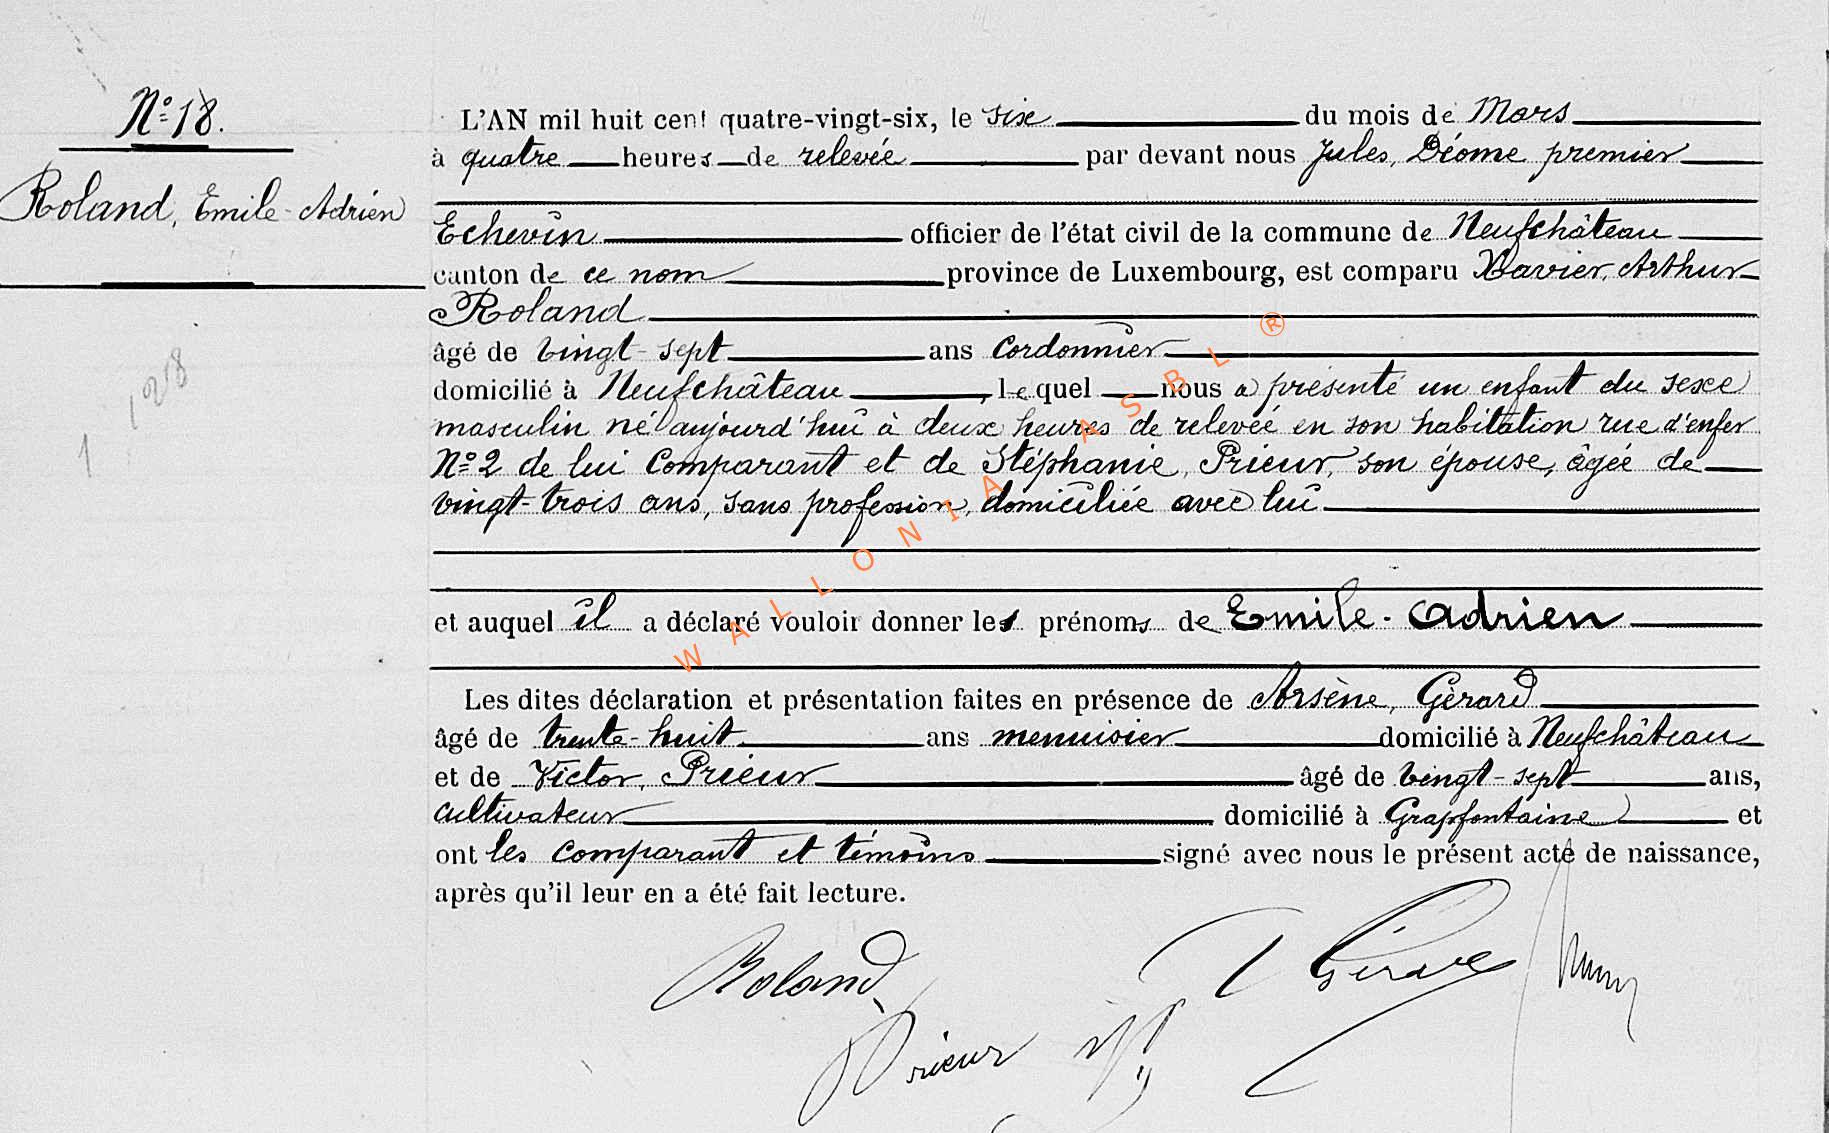 N° 18.
Roland, Emile-Adrien
L'AN mil huit cent quatre-vingt-six, le six du mois de Mars
à quatre heures de relevée par devant nous Jules, Déome premier
Echevin officier de l'état civil de la commune de Neufchâteau
canton de ce nom province de Luxembourg, est comparu Xavier, Arthur
Roland
âgé de vingt-sept ans cordonnier
domicilié à Neufchâteau, lequel nous a présenté un enfant du sexe
masculin né aujourd'hui à deux heures de relevée en son habitation rue d'enfer
N° 2 de lui comparant et de Stéphanie, Prieur, son épouse, âgée de
vingt-trois ans, sans profession, domiciliée avec lui
et auquel il a déclaré vouloir donner les prénoms de Emile-Adrien
Les dites déclaration et présentation faites en présence de Arsène, Gérard
âgé de trente-huit ans menuisier domicilié à Neufchâteau
et de Victor, Prieur âgé de vingt-sept ans,
cultivateur domicilié à Grapfontaine et
ont les comparant et témoins signé avec nous le présent acte de naissance,
après qu'il leur en a été fait lecture.
Roland
Gérard
Prieur
1 128
WALLONIA ASBL ®